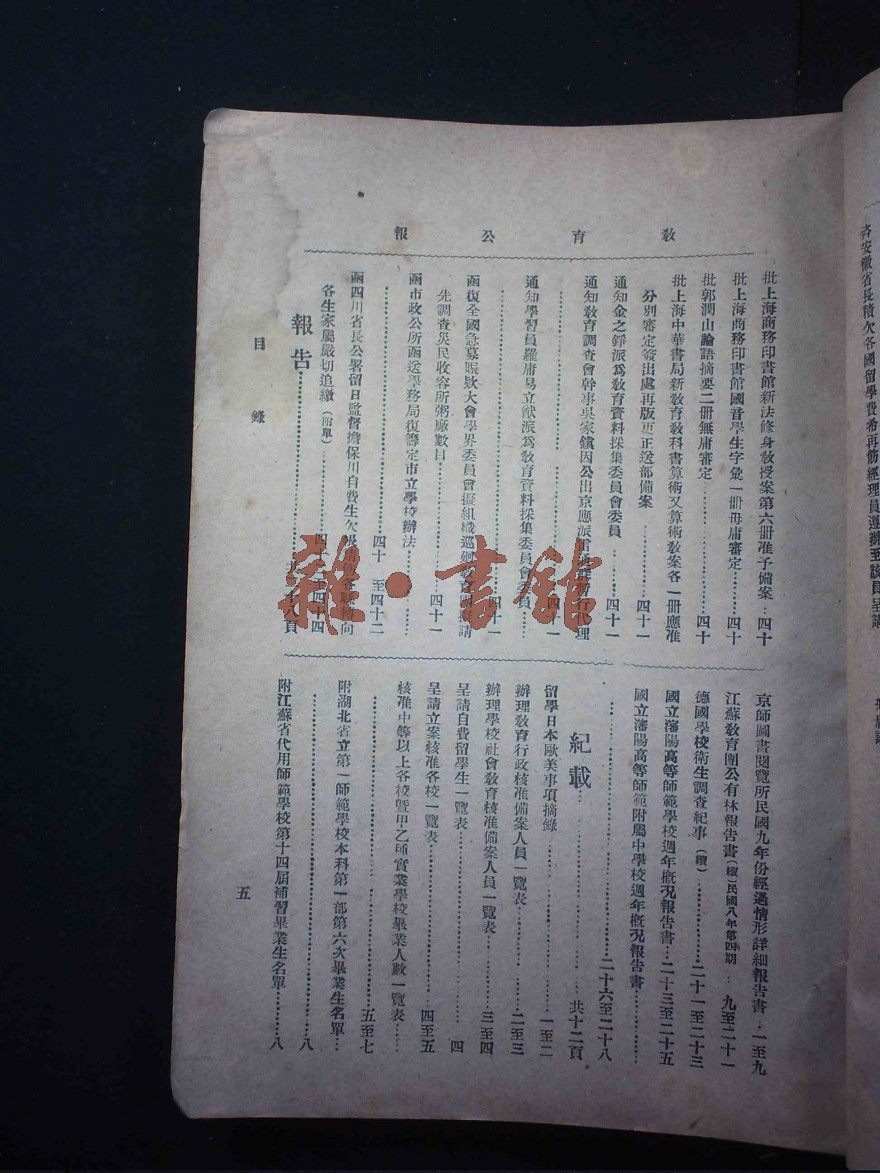 教育公報
批上海商務印書館新法修身教授案第六册准予備案…四十
批上海商務印書館國音學生字彙一册毋庸審定……四十
批郭潤山論語摘要二册無庸審定……四十
批上海中華書局新教育教科書算術又算術教案各一册應准
分別審定簽出處再版更正送部備案……四十一
通知金之錚派爲教育資料採集委員會委員……四十一
通知教育調查會幹事吳家鎮因公出京應派 暫行代理
……四十一
通知學習員羅庸易立猷派爲教育資料採集委員會委員……
……四十一
函復全國急募賑欵大會學界委員會擬組織巡廻教育 請
先調查災民收容所粥廠數目……四十一
函市政公所函送學務局復籌定市立學校辦法……
……四十一至四十二
函四川省長公署留日監督擔保川自費生欠 向
各生家屬嚴切追繳（附單）……四十 至四十四
報告……共二十八頁
京師圖書閱覽所民國九年份經過情形詳細報告書…一至九
江蘇教育團公有林報告書（續）民國八年第四期…九至二十一
德國學校衛生調查紀事（續）……二十一至二十三
國立瀋陽高等師範學校週年概况報告書…二十三至二十五
國立瀋陽高等師範附屬中學校週年概况報告書……
……二十六至二十八
紀載……共十二頁
留學日本歐美事項摘錄……一至二
辦理教育行政核准備案人員一覽表……二至三
辦理學校社會教育核准備案人員一覽表……三至四
呈請自費留學生一覽表……四
呈請立案核准各校一覽表……四至五
核准中等以上各校暨甲乙種實業學校畢業人數一覽表……
……五至七
附湖北省立第一師範學校本科第一部第六次畢業生名單…
……八
附江蘇省代用師範學校第十四屆補習畢業生名單……八
目錄
五
咨安徽省長積欠各國留學費希再飭經理員遵辦至該員呈請
雜·書館